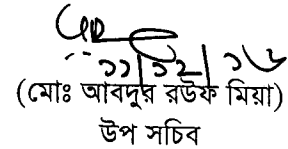 ১১/১২/১৬
(মোঃ আবদুর রউফ মিয়া)
উপ সচিব